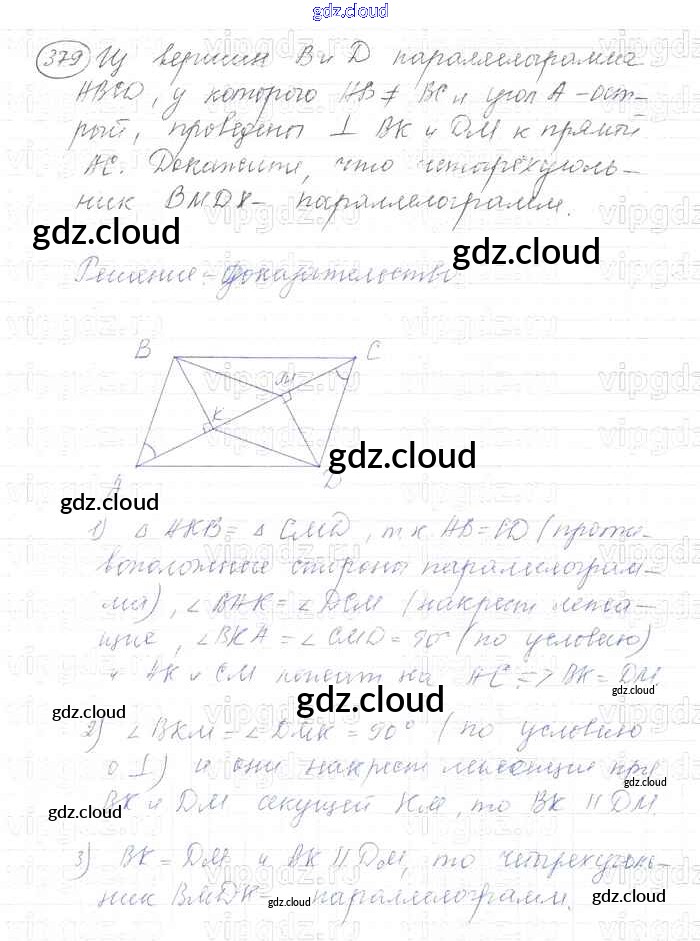 gdz.cloud
379 Из вершин В и D параллелограмма
ABCD, у которого AB ≠ BC и угол А – ост-
рый, проведены ⊥ BK и DM к прямой
AC. Докажите, что четырёхуголь-
ник BMDK – параллелограмм.
gdz.cloud
gdz.cloud
Решение – доказательство
B
C
M
K
A
D
gdz.cloud
gdz.cloud
1) Δ AKB = Δ CMD, т.к. AB = CD (проти-
воположные стороны параллелограм-
ма), ∠BAK = ∠DCM (накрест лежа-
щие, ∠BKA = ∠CMD = 90° (по условию)
и AK и CM лежат на AC => BK = DM.
gdz.cloud
gdz.cloud
gdz.cloud
2) ∠BKM = ∠DMK = 90° (по условию
о ⊥) и они накрест лежащие при
BK и DM секущей KM, то BK || DM.
gdz.cloud
gdz.cloud
3) BK = DM и BK || DM, то четырехуголь-
ник BMDK – параллелограмм.
gdz.cloud
gdz.cloud